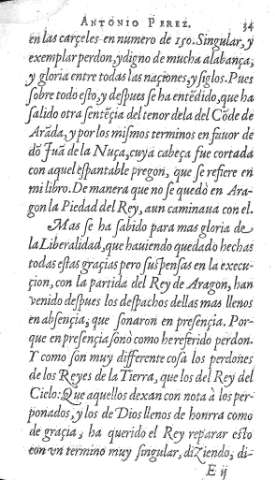 ANTONIO PEREZ. 34
en las carçeles en numero de 150. Singular, y
exemplar perdon, y digno de mucha alabança,
y gloria entre todas las naçiones, y siglos. Pues
sobre todo esto, y despues se ha entẽdido, que ha
salido otra sentẽçia del tenor de la del Cõde de
Arãda, y por los mismos terminos en fauor de
dõ Juã de la Nuça, cuya cabeça fue cortada
con aquel espantable pregon, que se refiere en
mi libro. De manera que no se quedò en Ara-
gon la Piedad del Rey, aun caminaua con el.
Mas se ha sabido para mas gloria de
la Liberalidad, que hauiendo quedado hechas
todas estas graçias pero suspensas en la execu-
çion, con la partida del Rey de Aragon, han
venido despues los despachos dellas mas llenos
en absençia, que sonaron en presençia. Por-
que en presençia sonò como he referido perdon.
Y como son muy differente cosa los perdones
de los Reyes de la Tierra, que los del Rey del
Cielo: Que aquellos dexan con nota à los per-
donados, y los de Dios llenos de honrra como
de graçia, ha querido el Rey reparar esto
con vn termino muy singular, diziendo, di-
E ij